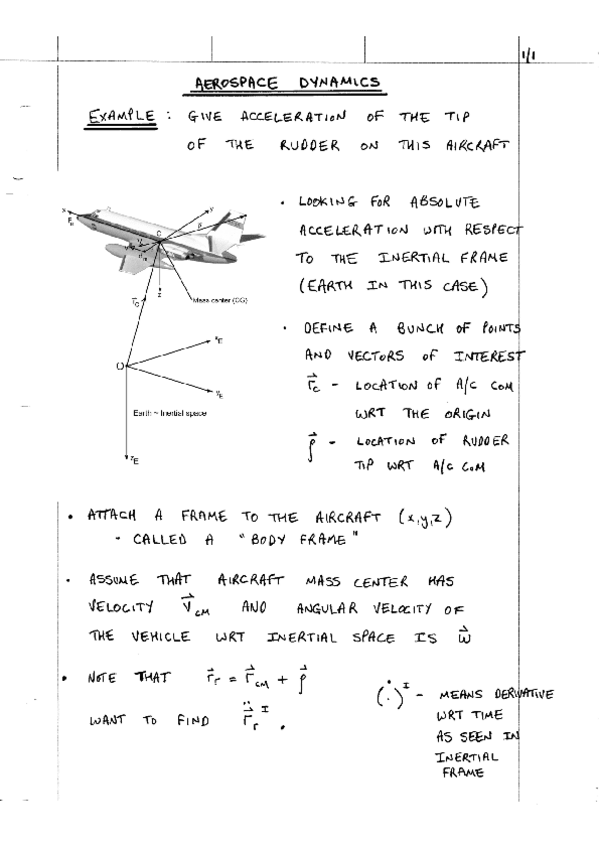 1/1
AEROSPACE DYNAMICS
EXAMPLE : GIVE ACCELERATION OF THE TIP
OF THE RUDDER ON THIS AIRCRAFT
• LOOKING FOR ABSOLUTE
ACCELERATION WITH RESPECT
TO THE INERTIAL FRAME
(EARTH IN THIS CASE)
• DEFINE A BUNCH OF POINTS
AND VECTORS OF INTEREST
r⃗c - LOCATION OF A/C COM
WRT THE ORIGIN
ρ⃗ - LOCATION OF RUDDER
TIP WRT A/C COM
x
y
C
z
Mass center (CG)
r⃗c
O
xE
yE
Earth ~ Inertial space
zE
• ATTACH A FRAME TO THE AIRCRAFT (x,y,z)
- CALLED A "BODY FRAME"
• ASSUME THAT AIRCRAFT MASS CENTER HAS
VELOCITY V⃗CM AND ANGULAR VELOCITY OF
THE VEHICLE WRT INERTIAL SPACE IS ω⃗
• NOTE THAT r⃗r = r⃗CM + ρ⃗
WANT TO FIND r⃗̈r I .
(·)̇ I - MEANS DERIVATIVE
WRT TIME
AS SEEN IN
INERTIAL
FRAME